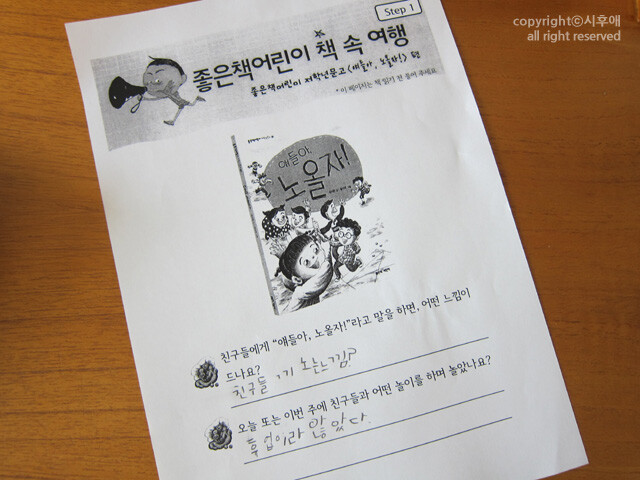 copyrightⓒ시후애
all right reserved
Step 1
좋은책어린이 책 속 여행
좋은책어린이 저학년문고 <얘들아, 노올자!> 편
* 이 페이지는 책 읽기 전 풀어 주세요.
얘들아,
노올자!
친구들에게 “얘들아, 노올자!”라고 말을 하면, 어떤 느낌이
드나요?
친구들 노는느낌?
오늘 또는 이번 주에 친구들과 어떤 놀이를 하며 놀았나요?
않았다.